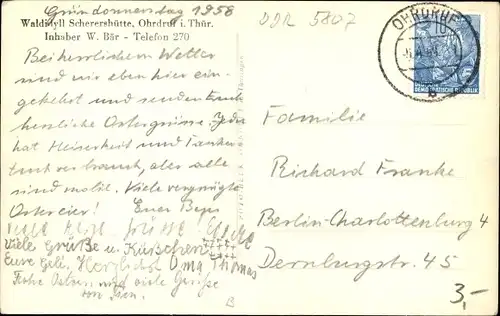 Gründonnerstag 1958
Waldidyll Scherershütte, Ohrdruf i. Thür.
Inhaber W. Bär - Telefon 270
Bei herrlichem Wetter
sind wir eben hier ein-
gekehrt und senden Euch
herzliche Ostergrüsse. Jede
hat Heiserkeit und
verbraucht, aber alle
sind mobil. Viele vergnügte
Ostereier! Euer
Viele Grüße u. Küßchen ++++
Eure Herzlichst Oma Thomas
Frohe Ostern und viele Grüße
von
DDR 5807
OHRDRUF
10
DEUTSCHE
DEMOKRATISCHE REPUBLIK
b
Familie
Richard Franke
Berlin-Charlottenburg 4
Dernburgstr. 45
3,-